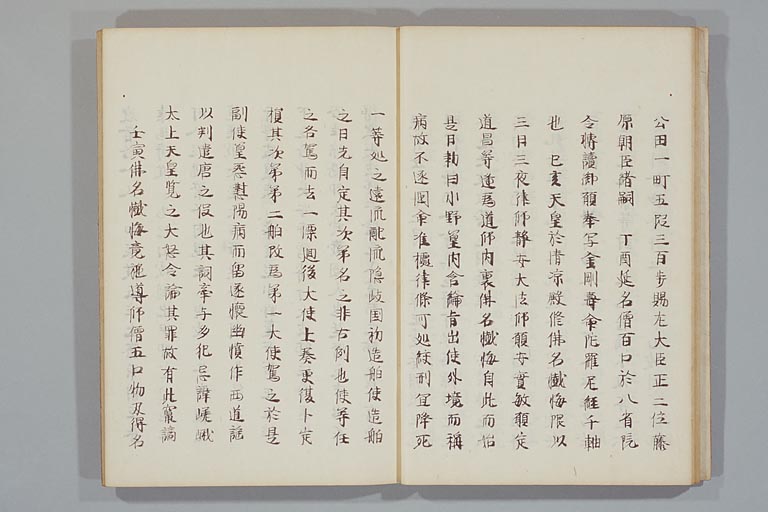 公田一町五段三百歩賜左大臣正二位藤
原朝臣緒嗣　丁酉延名僧百口於八省院
令転読御願奉写金剛寿命陀羅尼経千軸
也　己亥天皇於清涼殿修仏名懺悔限以
三日三夜律師静安大法師願安実敏願定
道昌等逓為道師内裏仏名懺悔自此而始
是日勅曰小野篁内含綸旨出使外境而称
病故不遂国命准拠律条可処絞刑宜降死
一等処之遠流配流隠岐国初造舶使造舶
之日先自定其次第名之非古例也使等任
之各駕而去一漂廻後大使上奏更復卜定
換其次第第二舶改為第一大使駕之於是
副使篁怨懟陽病而留遂懐幽憤作西道謡
以刺遣唐之役也其詞牽与多犯忌諱嵯峨
太上天皇覧之大怒令論其罪故有此竄謫
壬寅仏名懺悔竟施導師僧五口物及得名